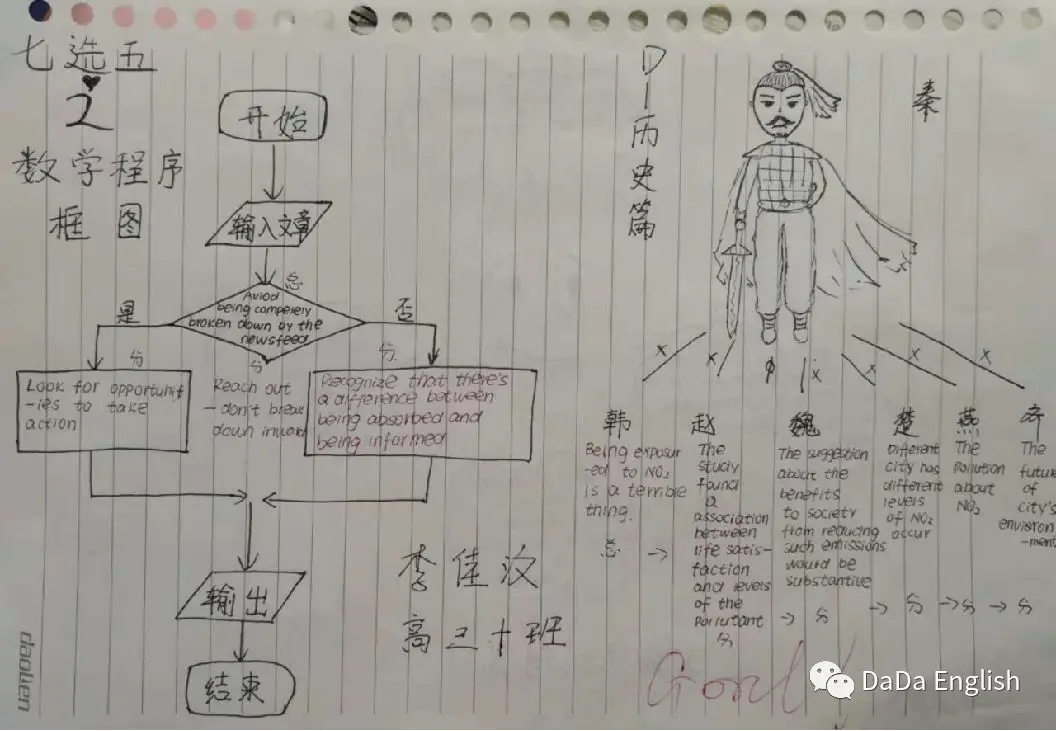 七选五
2
数学程序
框图
开始
输入文章
总
Aviod
being competely
broken down by the
newsfeed
是
否
分
分
分
Look for opportunit
-ies to take
action
Reach out
- don't break
down inward
Recognize that there's
a difference between
being absorbed and
being informed
输出
结束
李佳汶
高三十班
D
历
史
篇
秦
韩
Being exposur
-ed to NO₂
is a terrible
thing.
总 →
赵
The
study
found
a
association
between
life satis-
faction
and levels
of the
Pollutant
分
魏
The suggestion
about the
benefits
to society
from reducing
such emissions
would be
substantive
→ 分
楚
Different
city has
different
levels
of NO₂
occur
→ 分
燕
The
Pollution
about
NO₂
→ 分
齐
The
future
of
city's
environ
-ment
→ 分
Good!
daolien
DaDa English